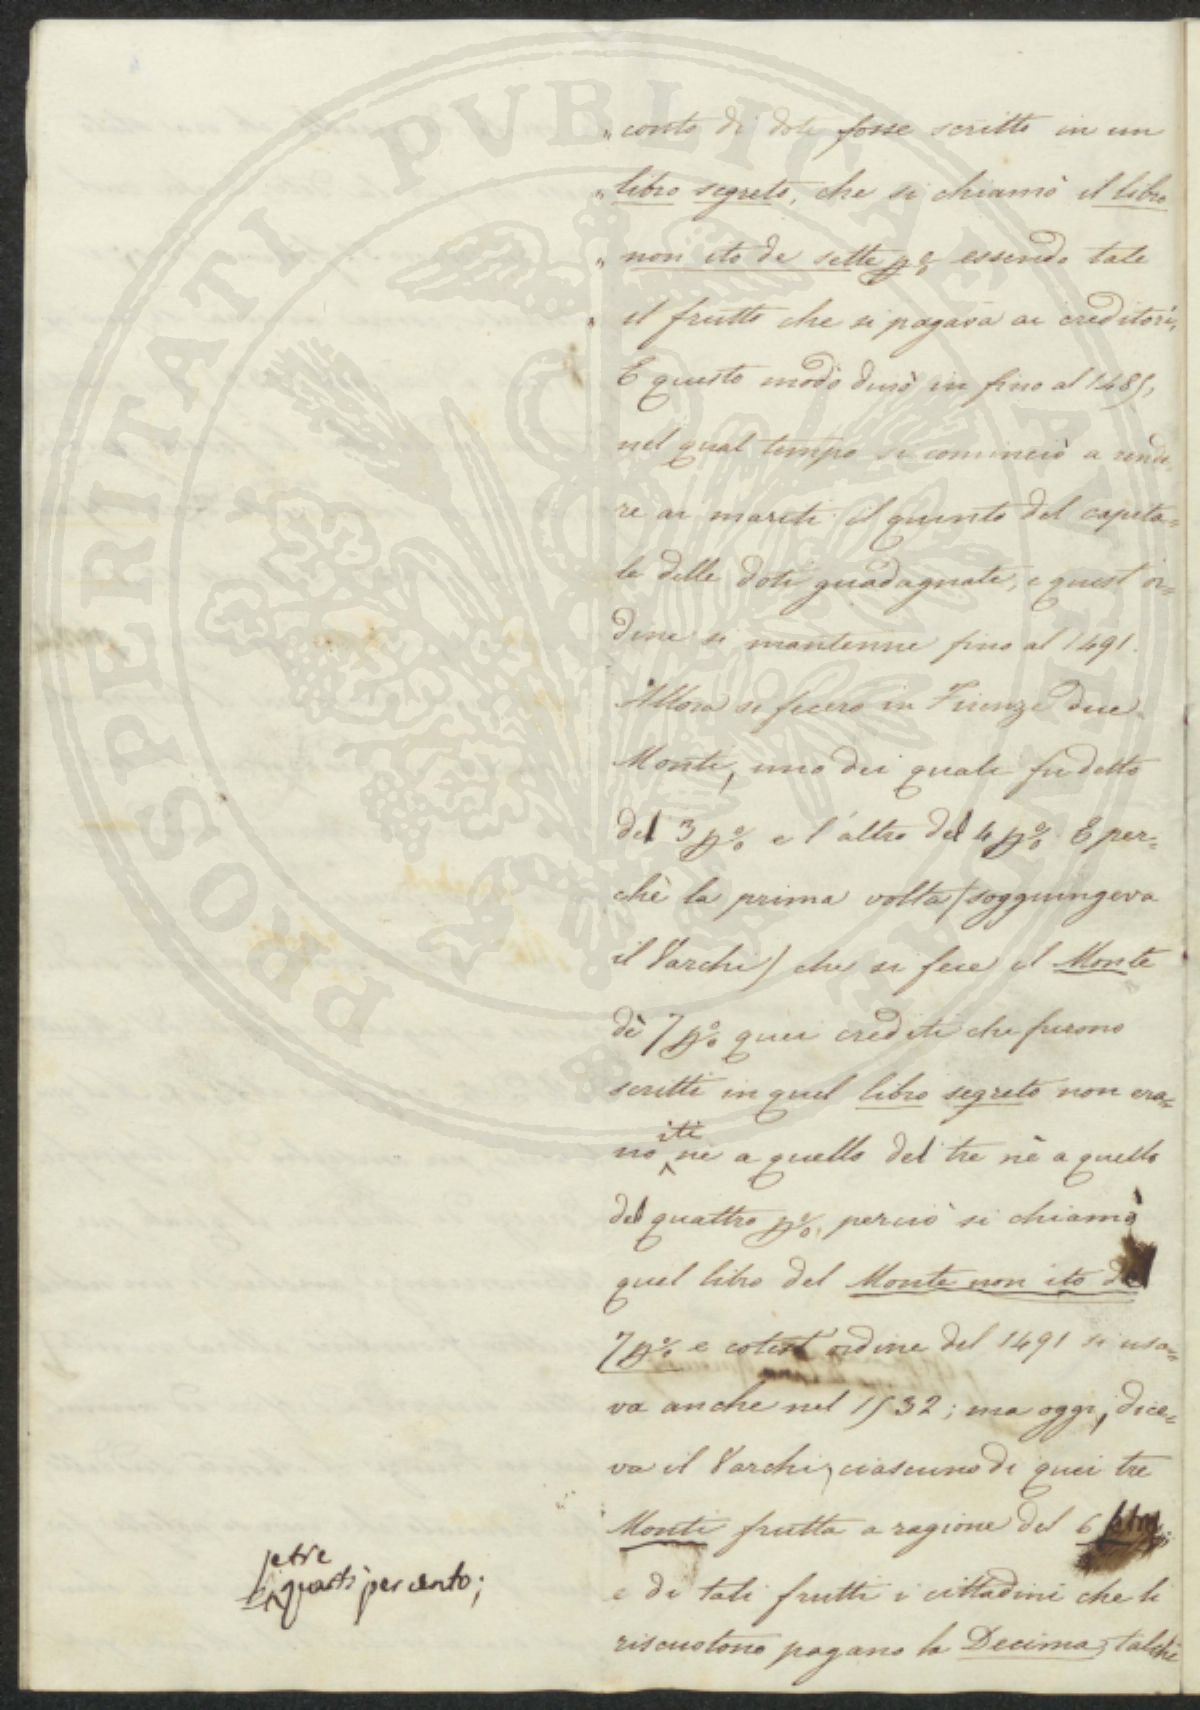 " conto di doti fosse scritto in un
" libro segreto, che si chiamò il libro
" non ito de sette p% essendo tale
" il frutto che si pagava ai creditori,
E questo modo durò in fino al 1485,
nel qual tempo si cominciò a rende-
re ai mariti il quinto del capita=
le delle doti guadagnate, e quest'or=
dine si mantenne fino al 1491.
Allora si fecero in Firenze due
Monti, uno dei quali fu detto
del 3 p% e l'altro del 4 p%. E per=
chè la prima volta (soggiungeva
il Varchi) che si fece il Monte
dè 7 p% quei crediti che furono
scritti in quel libro segreto non era=
no iti nè a quello del tre nè a quello
del quattro p%, perciò si chiamò
quel libro del Monte non ito del
7 p% e cotest'ordine del 1491 si usa=
va anche nel 1532; ma oggi, dice=
va il Varchi, ciascuno di quei tre
Monti frutta a ragione del 6 e tre
e tre
quarti per cento;
e di tali frutti i cittadini che li
riscuotono pagano la Decima, talchè
PROSPERITATI PUBLICAE